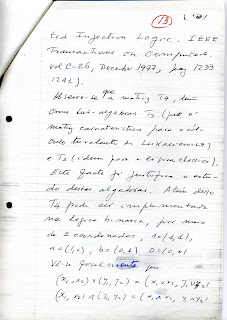 (13)
ted Injection Logic. IEEE
Transactions on Computers
vol C-26, December 1977, pag 1233
1241).
Observe-se que a matriz T4, tem
como sub-algebras T3 (que é
matriz característica para o cál-
culo trivalente de Lukasiewicz)
e T2 (idem para a lógica clássica).
Este facto já justifica o estu-
do destas algebras. Além disso
T4 pode ser implementada
na lógica binaria, por meio
de 2 coordenadas, 1=(1,1),
a=(1,0), b=(0,1) 0=(0,0)
Vê-se facilmente que
(x1,x2) ∨ (y1,y2) = (x1∨x2, y1∨y2)
(x1,x2) ∧ (y1,y2) = (x1∧x2, y1∧y2)